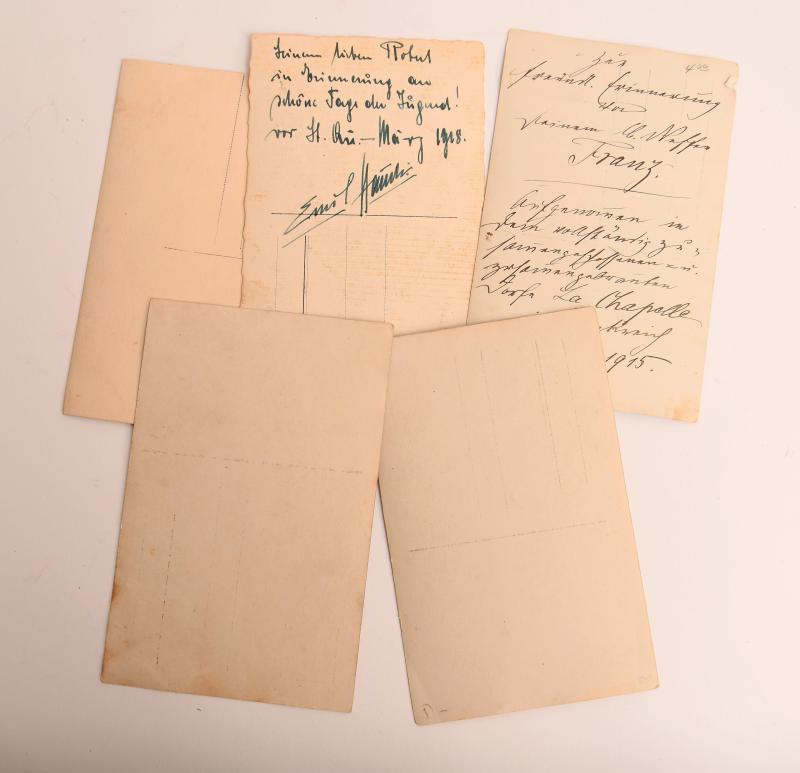 Seinem lieben Robert
in Erinnerung an
schöne Tage der Jugend!
vor St. Qu. – März 1918.
Emil
4
Zur
freundl. Erinnerung
von
Deinem lb. Neffen
Franz.
Aufgenommen in
dem vollständig zu-
sammengeschossenen u.
zusammengebrannten
Dorfe La Chapelle
1915.